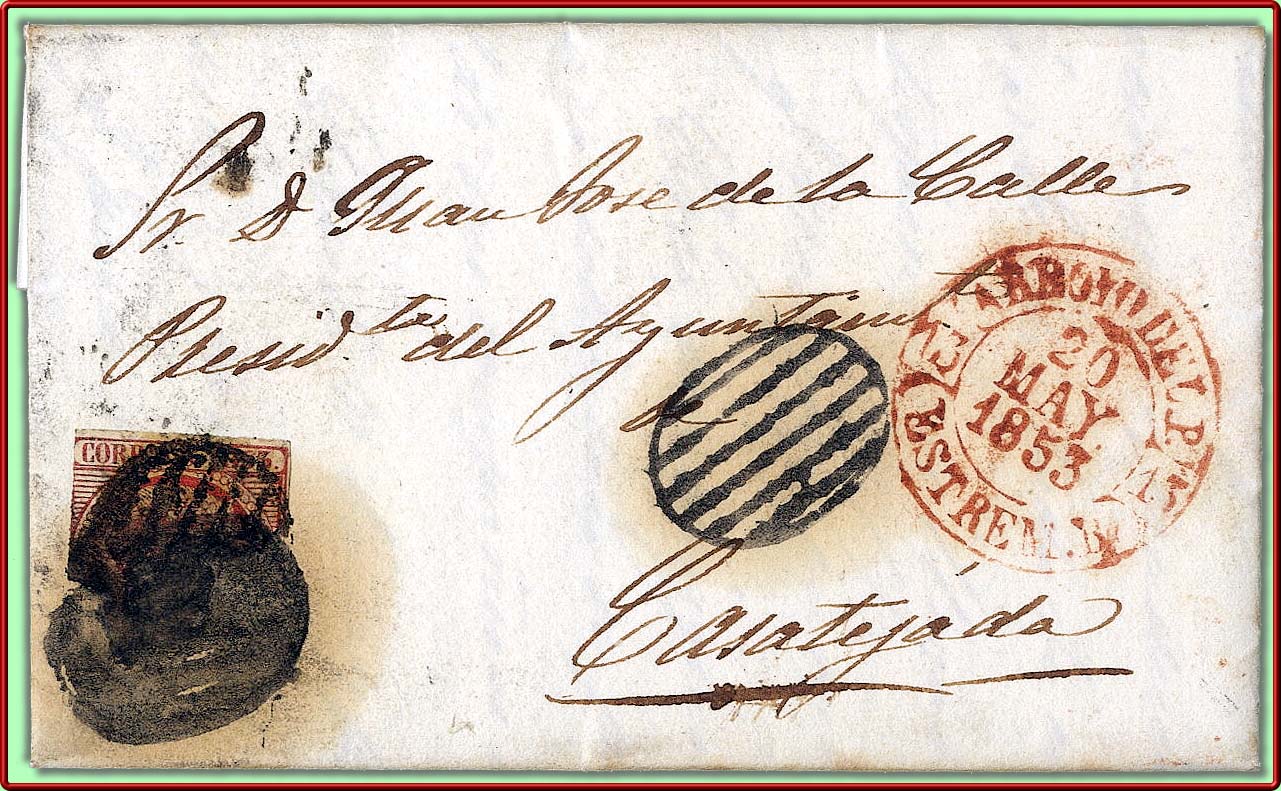 Sr D Juan Jose de la Calle
Presid.te del Ayuntamt
de
Casatejada
CORREOS
ARROYO DEL P.
20
MAY
1853
ESTREM. B